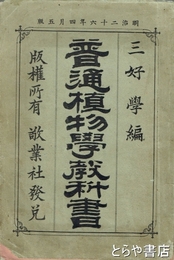 明治二十六年四月五版
三好學編
普通植物學教科書
版權所有 敬業社發兌
とらや書店